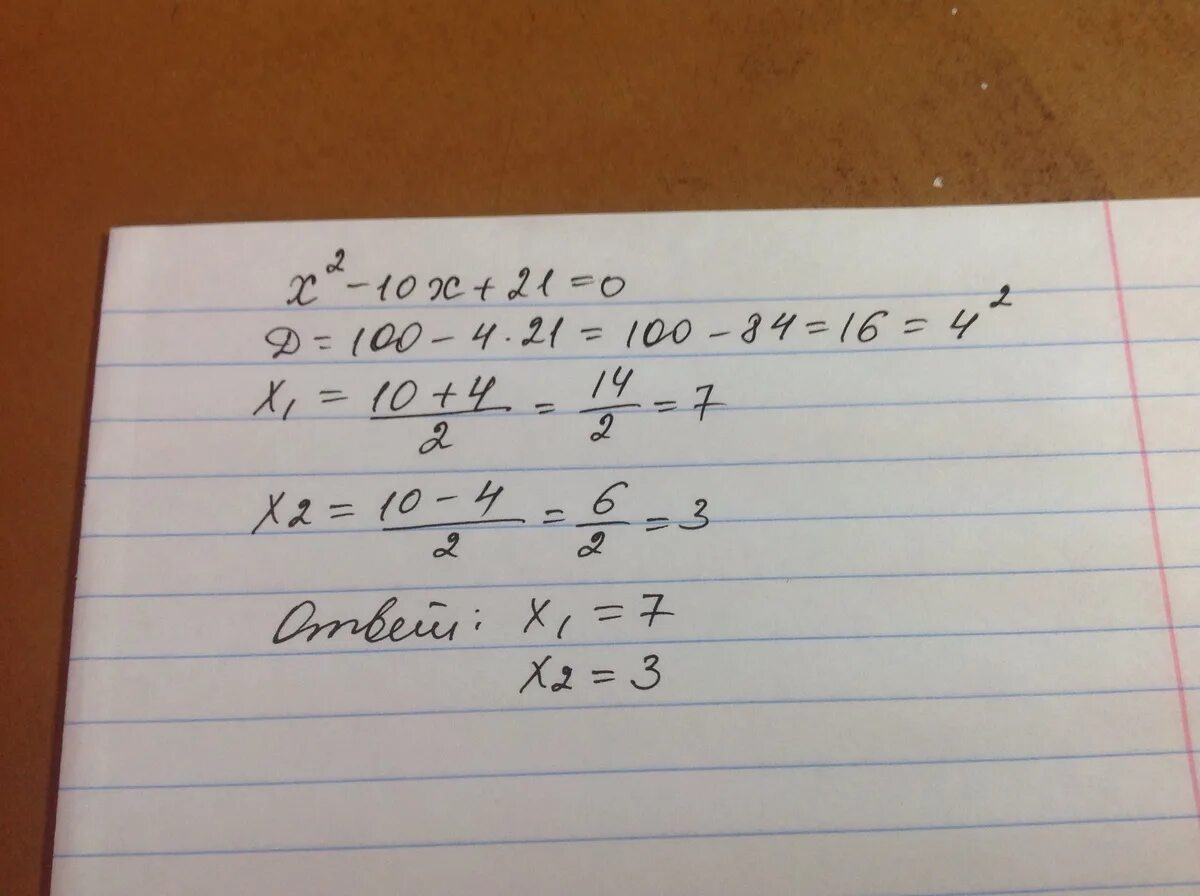 x² - 10x + 21 = 0
Д = 100 - 4 · 21 = 100 - 84 = 16 = 4²
x₁ = (10 + 4)/2 = 14/2 = 7
x2 = (10 - 4)/2 = 6/2 = 3
Ответ: x₁ = 7
x2 = 3